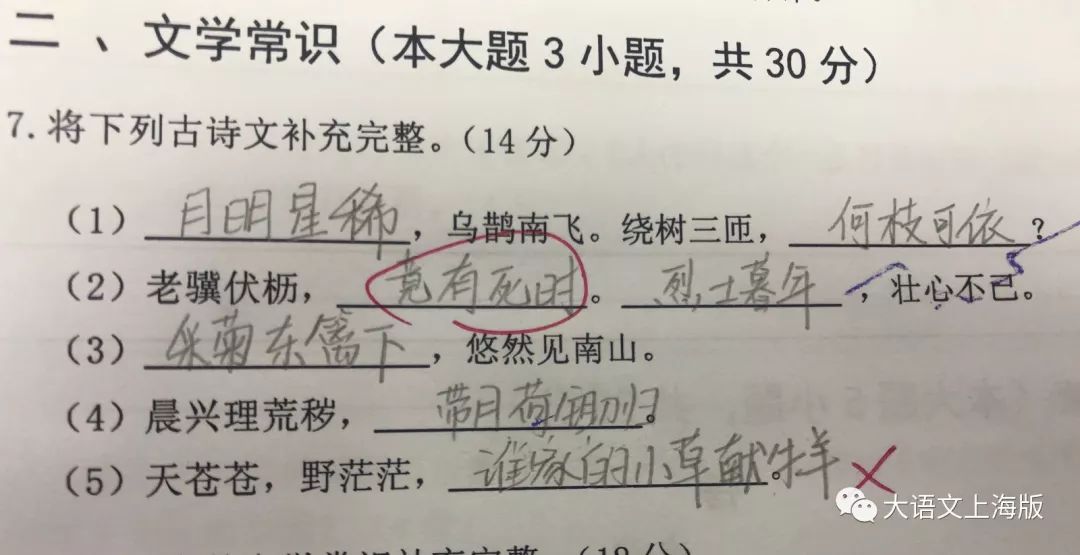 二、文学常识（本大题3小题，共30分）
7.将下列古诗文补充完整。（14分）
（1）月明星稀，乌鹊南飞。绕树三匝，何枝可依？
（2）老骥伏枥，竟有死时。烈士暮年，壮心不已。
（3）采菊东篱下，悠然见南山。
（4）晨兴理荒秽，带月荷锄归。
（5）天苍苍，野茫茫，谁家的小草献牛羊。
大语文上海版